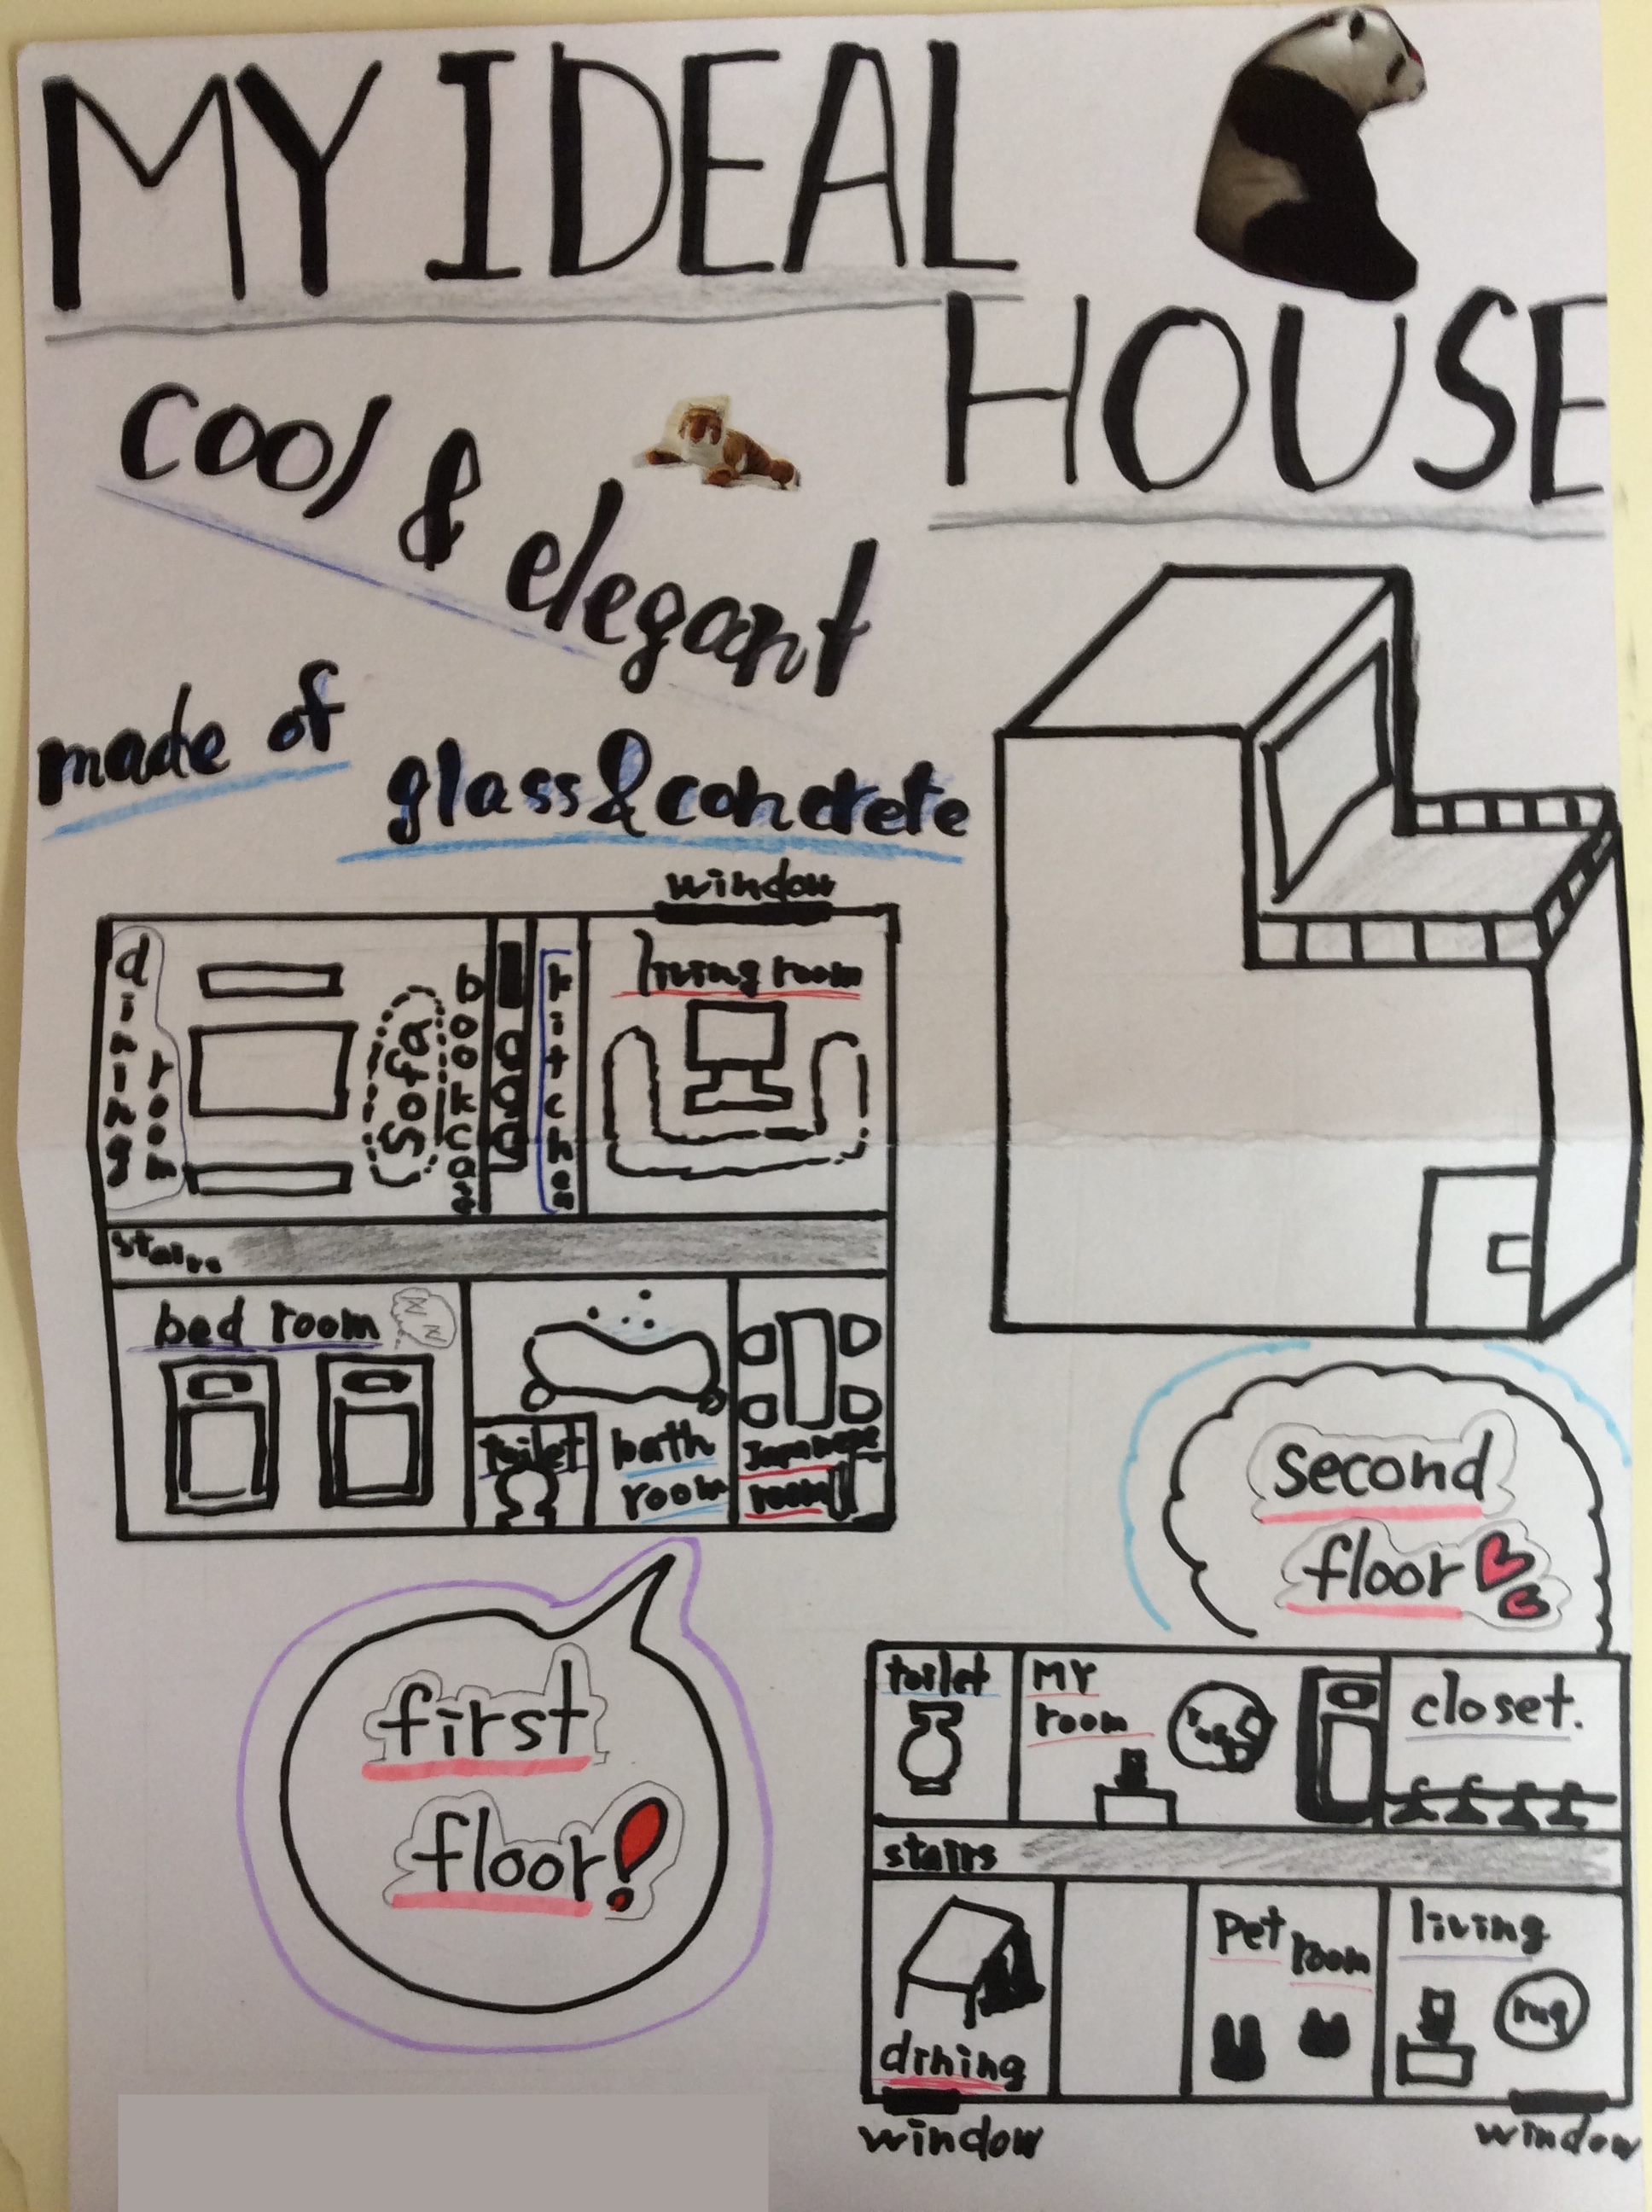 MY IDEAL
HOUSE
cool & elegant
made of
glass & concrete
window
dining
room
sofa
bookcase
kitchen
living room
stairs
bed room
toilet
bath
room
Japanese
room
first
floor!
second
floor
toilet
MY
room
rug
closet.
stairs
dining
pet
room
living
rug
window
window